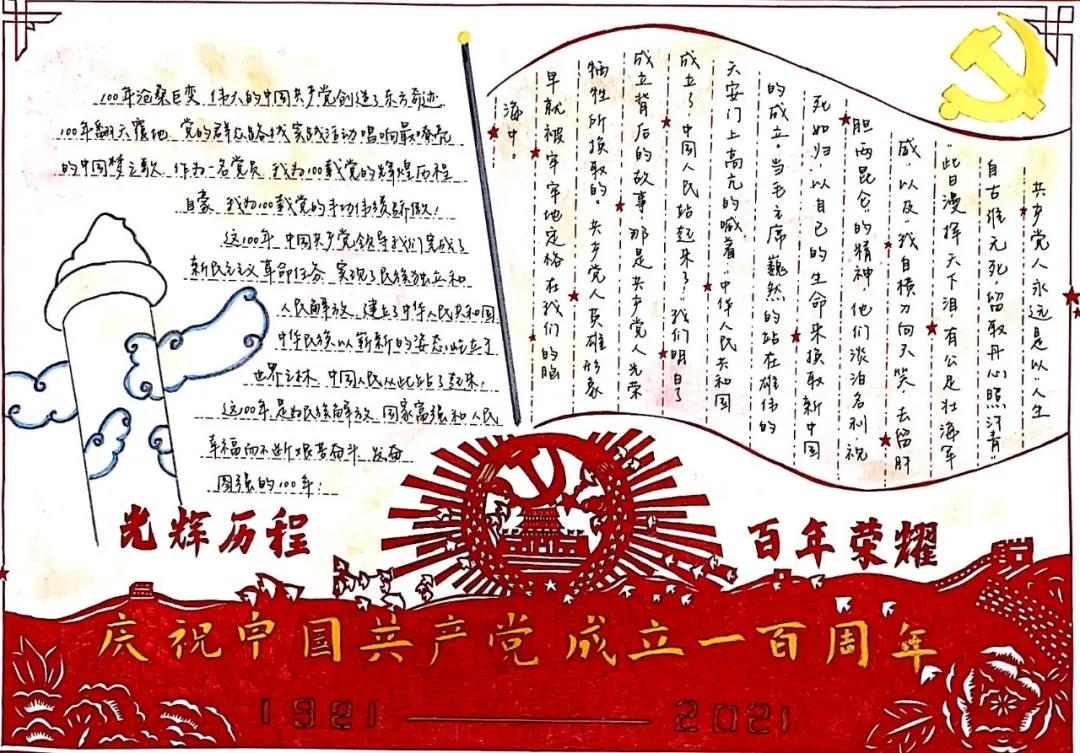 100年沧桑巨变,伟大的中国共产党创造了东方奇迹
100年翻天覆地,党的群众路线实践活动唱响最嘹亮
的中国梦之歌,作为一名党员,我为100载党的辉煌历程
自豪,我为100载党的丰功伟绩骄傲!
这100年,中国共产党领导我们完成了
新民主主义革命任务,实现了民族独立和
人民解放,建立了中华人民共和国
中华民族以崭新的姿态屹立于
世界之林,中国人民从此站了起来!
这100年是为民族解放、国家富强和人民
幸福而不断艰苦奋斗、发奋
图强的100年!
共产党人永远是以“人生
自古谁无死,留取丹心照汗青”
“此日漫挥天下泪,有公足壮海军
威”以及“我自横刀向天笑,去留肝
胆两昆仑”的精神,他们淡泊名利,视
死如归,以自己的生命来换取新中国
的成立。当毛主席巍然的站在雄伟的
天安门上高亢的喊着:“中华人民共和国
成立了,中国人民站起来了!”我们明白了
成立背后的故事,那是共产党人光荣
牺牲所换取的。共产党人英雄形象
早就被牢牢地定格在我们的脑
海中。
光辉历程
百年荣耀
庆祝中国共产党成立一百周年
1921——2021